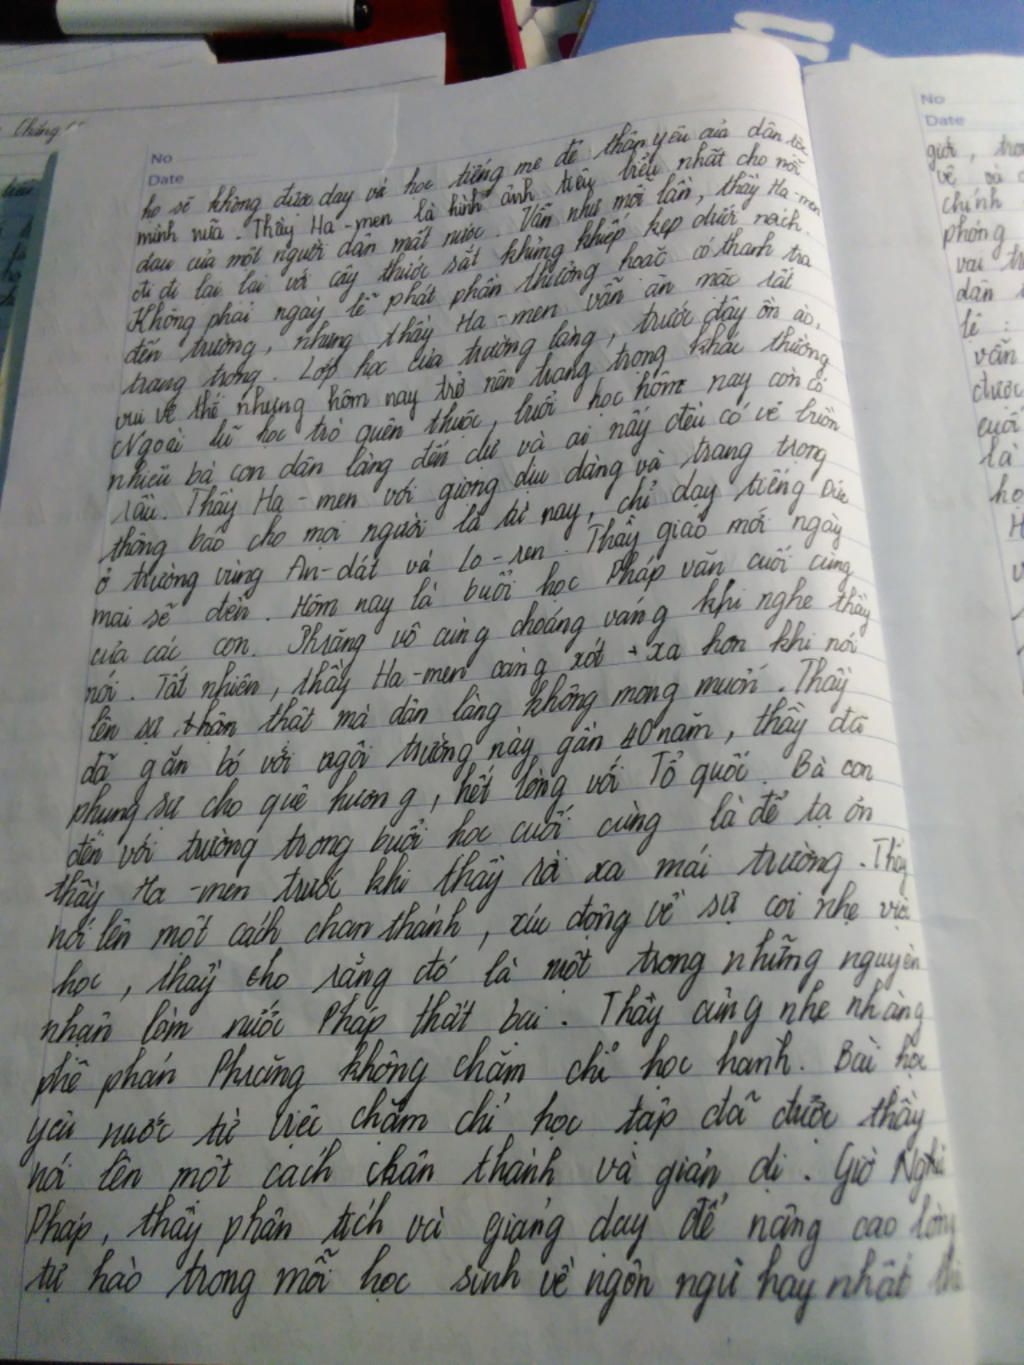 Chẳng
No
Date
họ sẽ không được dạy và học tiếng mẹ đẻ thân yêu của dân tộc
mình nữa. Thầy Ha-men là hình ảnh tiêu biểu nhất cho nỗi
đau của một người dân mất nước. Vẫn như mỗi lần, thầy Ha-men
đi đi lại lại với cây thước sắt khủng khiếp kẹp dưới nách.
Không phải ngày lễ phát phần thưởng hoặc có thanh tra
đến trường, nhưng thầy Ha-men vẫn ăn mặc rất
trang trọng. Lớp học của trường làng, trước đây ồn ào,
vui vẻ thế nhưng hôm nay trở nên trang trọng khác thường
Ngoài lũ học trò quen thuộc, buổi học hôm nay còn có
nhiều bà con dân làng đến dự và ai nấy đều có vẻ buồn
rầu. Thầy Ha-men với giọng dịu dàng và trang trọng
thông báo cho mọi người là từ nay, chỉ dạy tiếng Đức
ở trường vùng An-dát và Lo-ren. Thầy giáo mới ngày
mai sẽ đến. Hôm nay là buổi học Pháp văn cuối cùng
của các con. Phrăng vô cùng choáng váng khi nghe thầy
nói. Tất nhiên, thầy Ha-men càng xót xa hơn khi nói
lên sự thật mà dân làng không mong muốn. Thầy
đã gắn bó với ngôi trường này gần 40 năm, thầy đã
phụng sự cho quê hương, hết lòng với Tổ quốc. Bà con
đến với trường trong buổi học cuối cùng là để tạ ơn
thầy Ha-men trước khi thầy rời xa mái trường. Thầy
nói lên một cách chan thành, xúc động về sự coi nhẹ việc
học, thầy cho rằng đó là một trong những nguyên
nhân làm nước Pháp thất bại. Thầy cũng nhẹ nhàng
phê phán Phrăng không chăm chỉ học hành. Bài học
yêu nước từ việc chăm chỉ học tập đã được thầy
nói lên một cách chân thành và giản dị. Giờ Ngữ
Pháp, thầy phân tích và giảng dạy để nâng cao lòng
tự hào trong mỗi học sinh về ngôn ngữ hay nhất
No
Date
giới,
vẽ và
chính
phóng
vai
dân
lệ :
văn
được
cuối
là